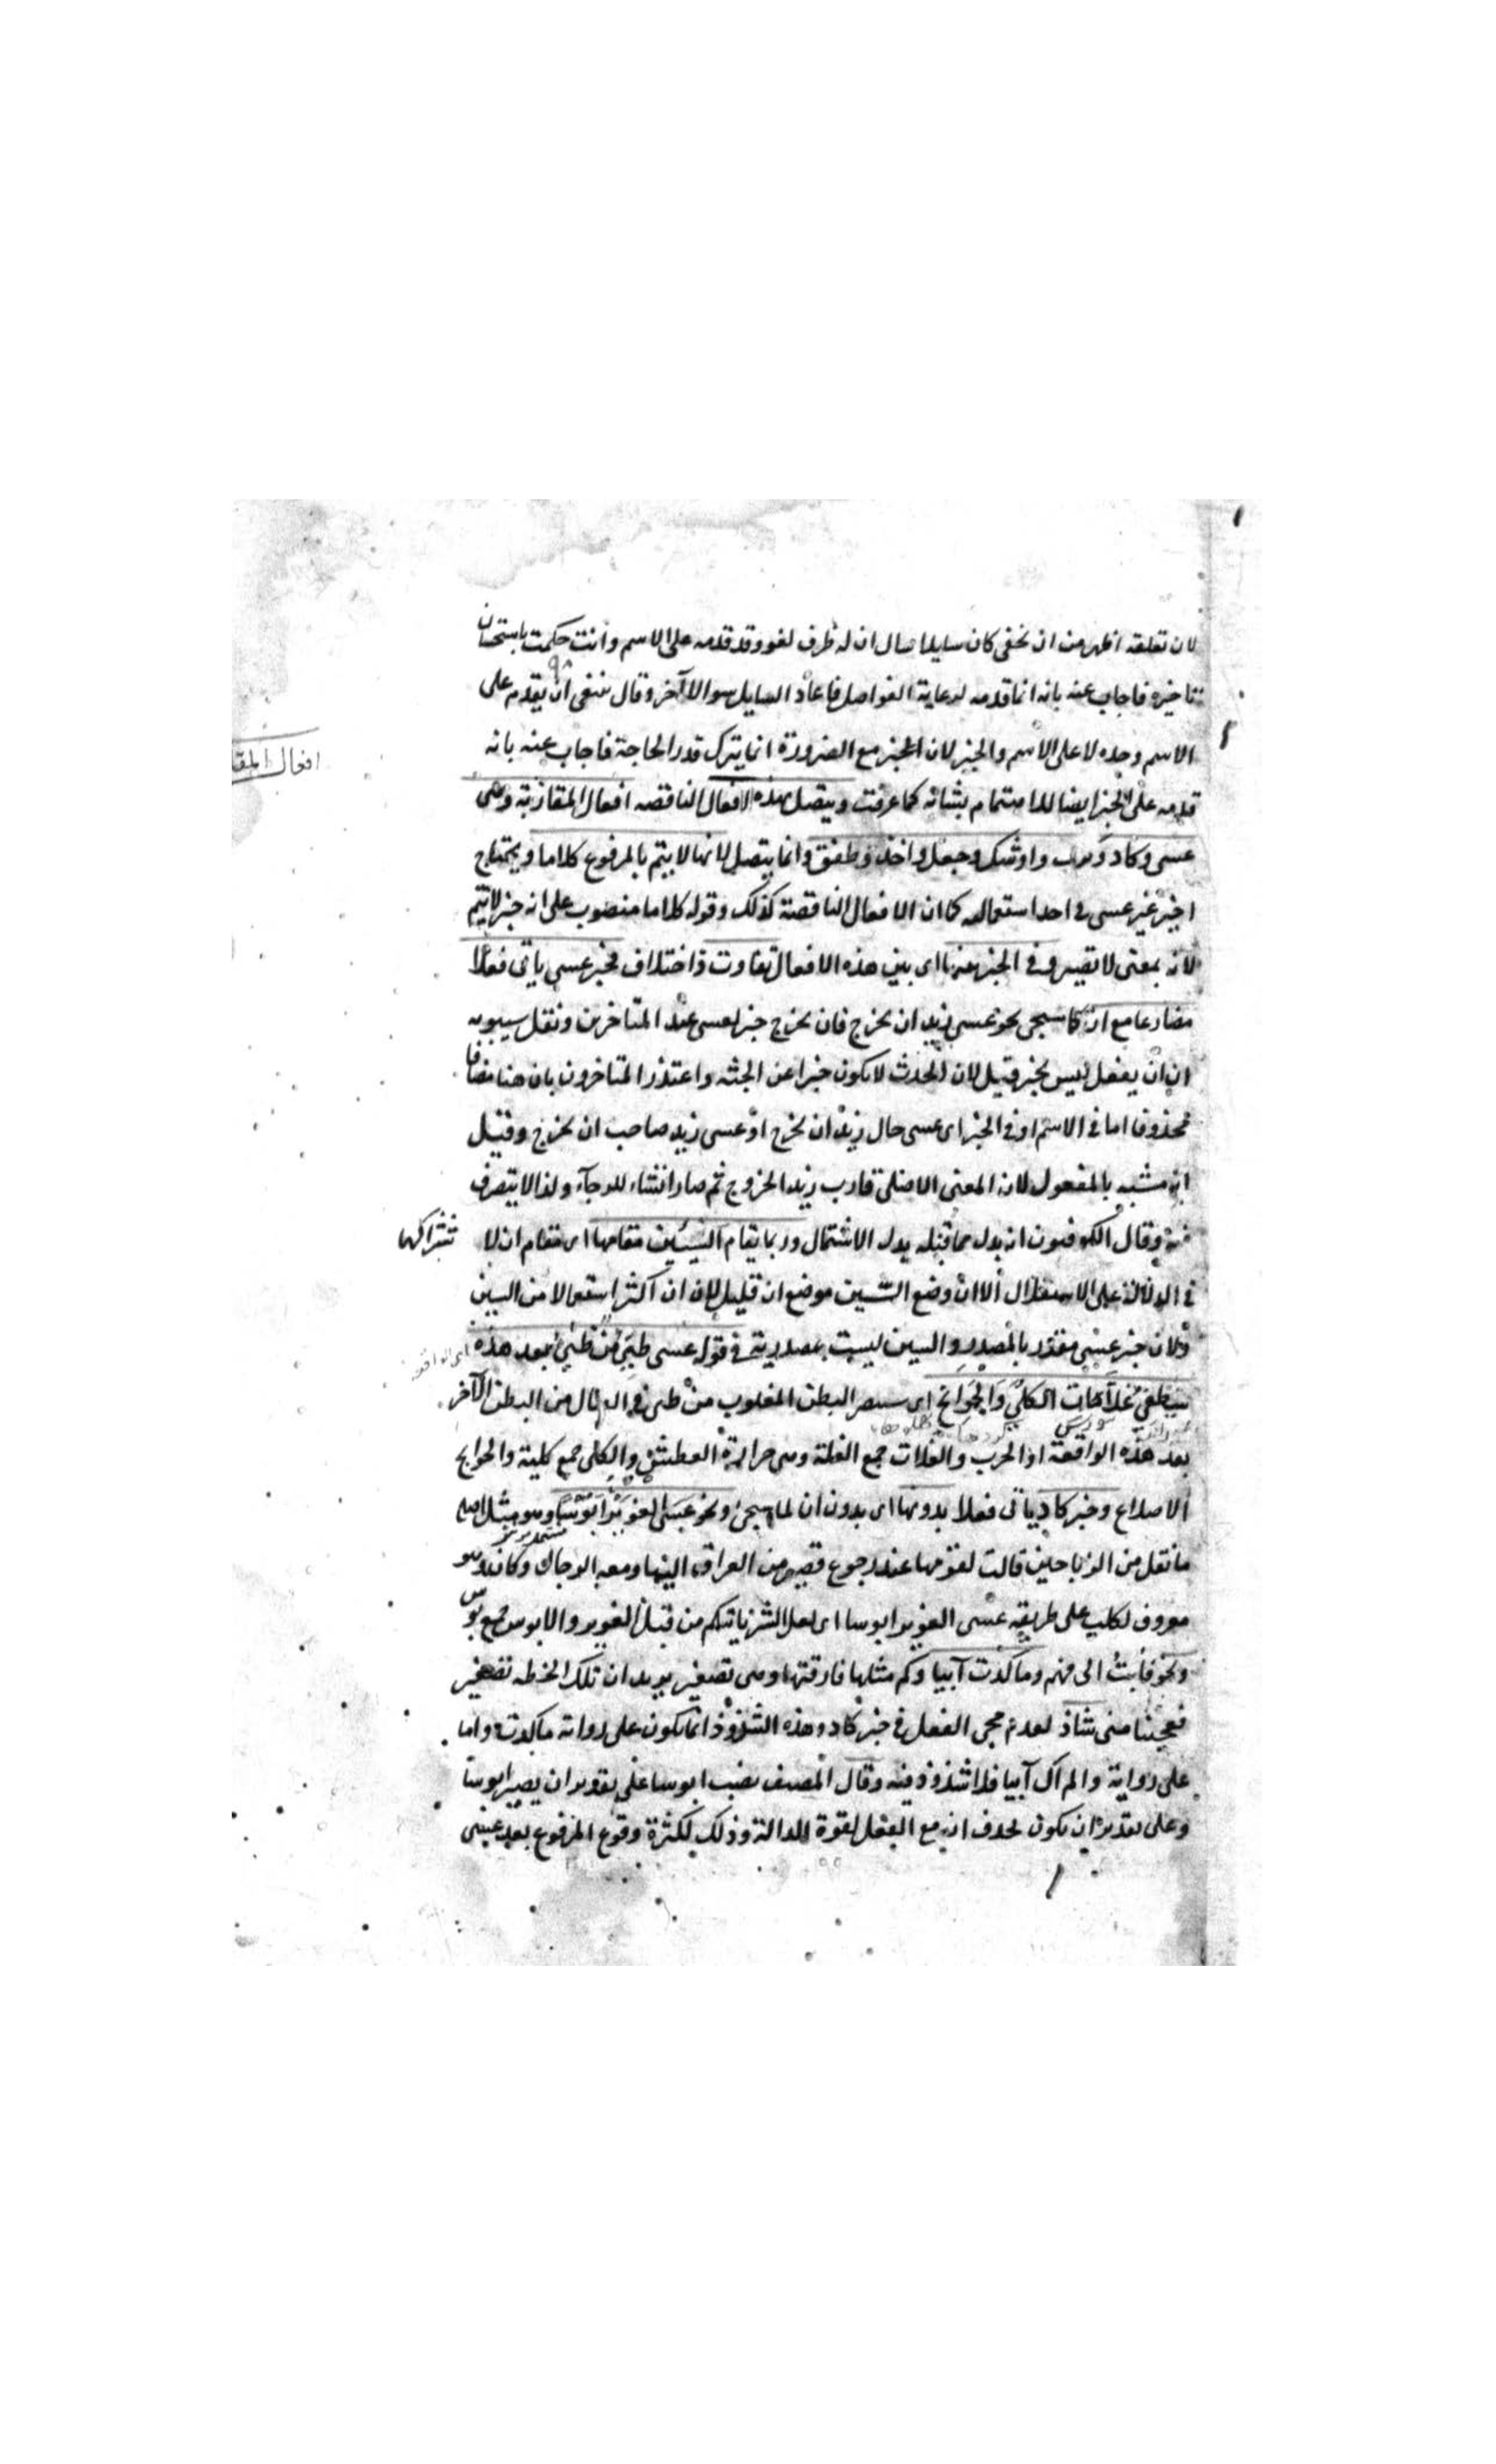 لان تعلقه اظهر من ان يخفى كان سايلا سال ان له ظرف لغو وقد قدمه على الاسم وانت حكمت باستحسان
تاخيره فاجاب عنه بانه انما قدمه لرعاية الفواصل فاعاد السايل سوالا آخر وقال ينبغى ان يقدم على
الاسم وحده لا على الاسم والخبر لان الخبر مع الضرورة انما يترك قدر الحاجة فاجاب عنه بانه
افعال المقا
قدمه على الخبر ايضا للاهتمام بشانه كما عرفت ويتصل بهذه الافعال الناقصه افعال المقاربة وهى
عسى وكاد وكرب واوشك وجعل واخذ وطفق وانما يتصل لانها لا يتم بالمرفوع كلاما ويحتاج
الخبر غير عسى فى احد استعماليه كما ان الافعال الناقصة كذلك وقوله كلاما منصوب على انه خبر لا يتم
لانه بمعنى لا تصير وفى الخبر عنها اى بين هذه الافعال تفاوت واختلاف فخبر عسى ياتى فعلا
مضارعا مع ان كما سيجى نحو عسى زيد ان يخرج فان يخرج خبر لعسى عند المتاخرين ونقل سيبويه
ان ان يفعل ليس بخبر قيل لان الحدث لا يكون خبرا عن الجثه واعتذر المتاخرون بان هنا مضافا
محذوفا اما فى الاسم او فى الخبر اى عسى حال زيد ان يخرج او عسى زيد صاحب ان يخرج وقيل
انه مشبه بالمفعول لان المعنى الاصلى قارب زيد الخروج ثم صار انشاء للرجآء ولذا لا يتصرف
فيه وقال الكوفيون انه بدل مما قبله بدل الاشتمال وربما يقام السين مقامها اى مقام ان لا شتراكهما
فى الدلالة على الاستقبال الا ان وضع السين موضع ان قليل لان ان اكثر استعمالا من السين
ولان خبر عسى مقدر بالمصدر والسين ليست بمصدرية فى قوله عسى طيئ من طيئ بعد هذه
ستطفئ غلات الكلى والجوانح اى سينصر البطن المغلوب من طى فى القتال من البطن الآخر
بعد هذه الواقعة او الحرب والغلات جمع الغلة وهى حرارة العطش والكلى جمع كلية والجوانح
الاضلاع وخبر كاد ياتى فعلا بدونها اى بدون ان لما سيجى ونحو عسى الغوير ابؤسا وهو مثل اصله
ما نقل من الزبا حين قالت لقومها عند رجوع قصير من العراق اليها ومعه الرجال وكان الغوير
معروف لكلب على طريقه عسى الغوير ابوسا اى لعل الشر ياتيكم من قبل الغوير والابوس جمع بوس
ونحو فابت الى فهم وما كدت آيبا وكم مثلها فارقتها وهى تصفر يريد ان تلك الخطه تصفر
تعجبا منى شاذ لعدم مجى الفعل فى خبر كاد وهذه الشذوذ انما يكون على رواية ما كدت واما
على رواية ولم اك آيبا فلا شذوذ فيه وقال المصنف نصب ابوسا على تقدير ان يصير ابوسا
وعلى تقدير ان يكون بحذف ان مع الفعل لقوة الدلالة وذلك لكثرة وقوع المرفوع بعد عسى